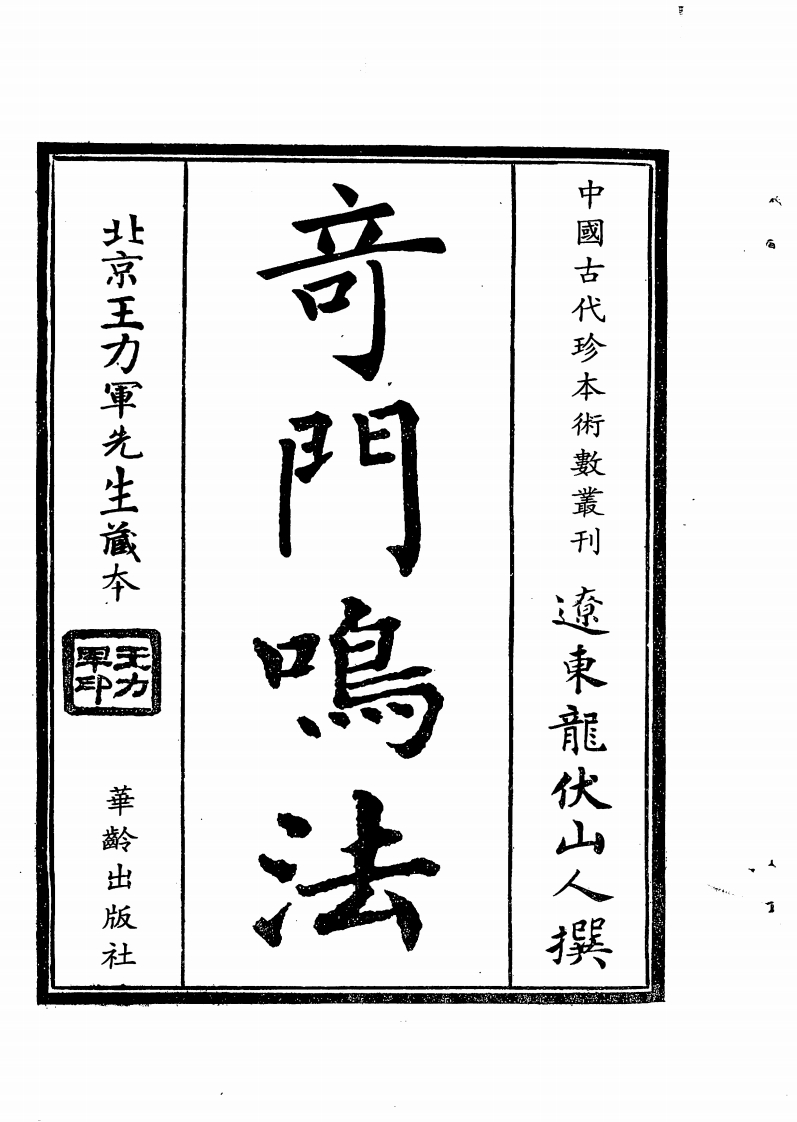 中國古代珍本術數叢刊
遼東龍伏山人撰
竒門鳴法
北京王力軍先生藏本
王力
軍印
華齡出版社